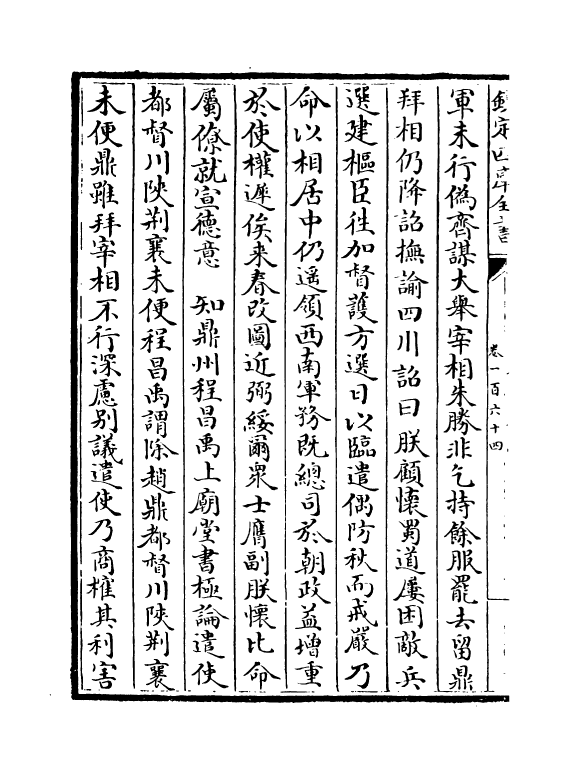 欽定四庫全書
卷一百六十四
軍未行偽齊謀大舉宰相朱勝非乞持餘服罷去留鼎
拜相仍降詔撫諭四川詔曰朕顧懷蜀道屢困敵兵
選建樞臣往加督護方選日以臨遣偶防秋而戒嚴乃
命以相居中仍遥領西南軍務既總司於朝政益增重
於使權遲俟来春改圖近弼綏爾衆士膺副朕懷比命
屬僚就宣德意 知鼎州程昌禹上廟堂書極論遣使
都督川陜荆襄未便程昌禹謂除趙鼎都督川陜荆襄
未便鼎雖拜宰相不行深慮别議遣使乃商榷其利害